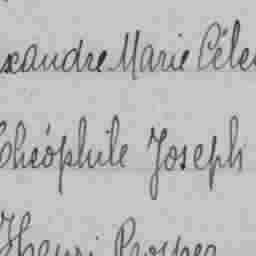 xandre Marie Céle
Théophile Joseph
Henri Prosper